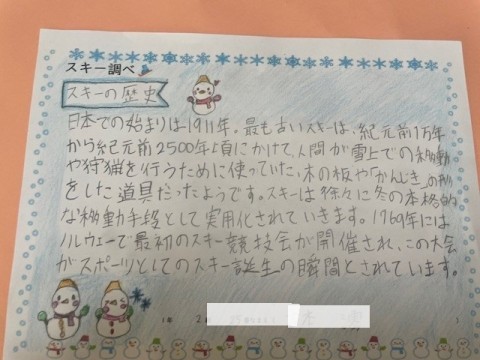 スキー調べ
スキーの歴史
日本での始まりは1911年。最も古いスキーは、紀元前1万年
から紀元前2500年頃にかけて、人間が雪上での移動
や狩猟を行うために使っていた、木の板や「かんじき」の形
をした道具だったようです。スキーは徐々に冬の本格的
な移動手段として実用化されていきます。1769年には
ノルウェーで最初のスキー競技会が開催され、この大会
がスポーツとしてのスキー誕生の瞬間とされています。